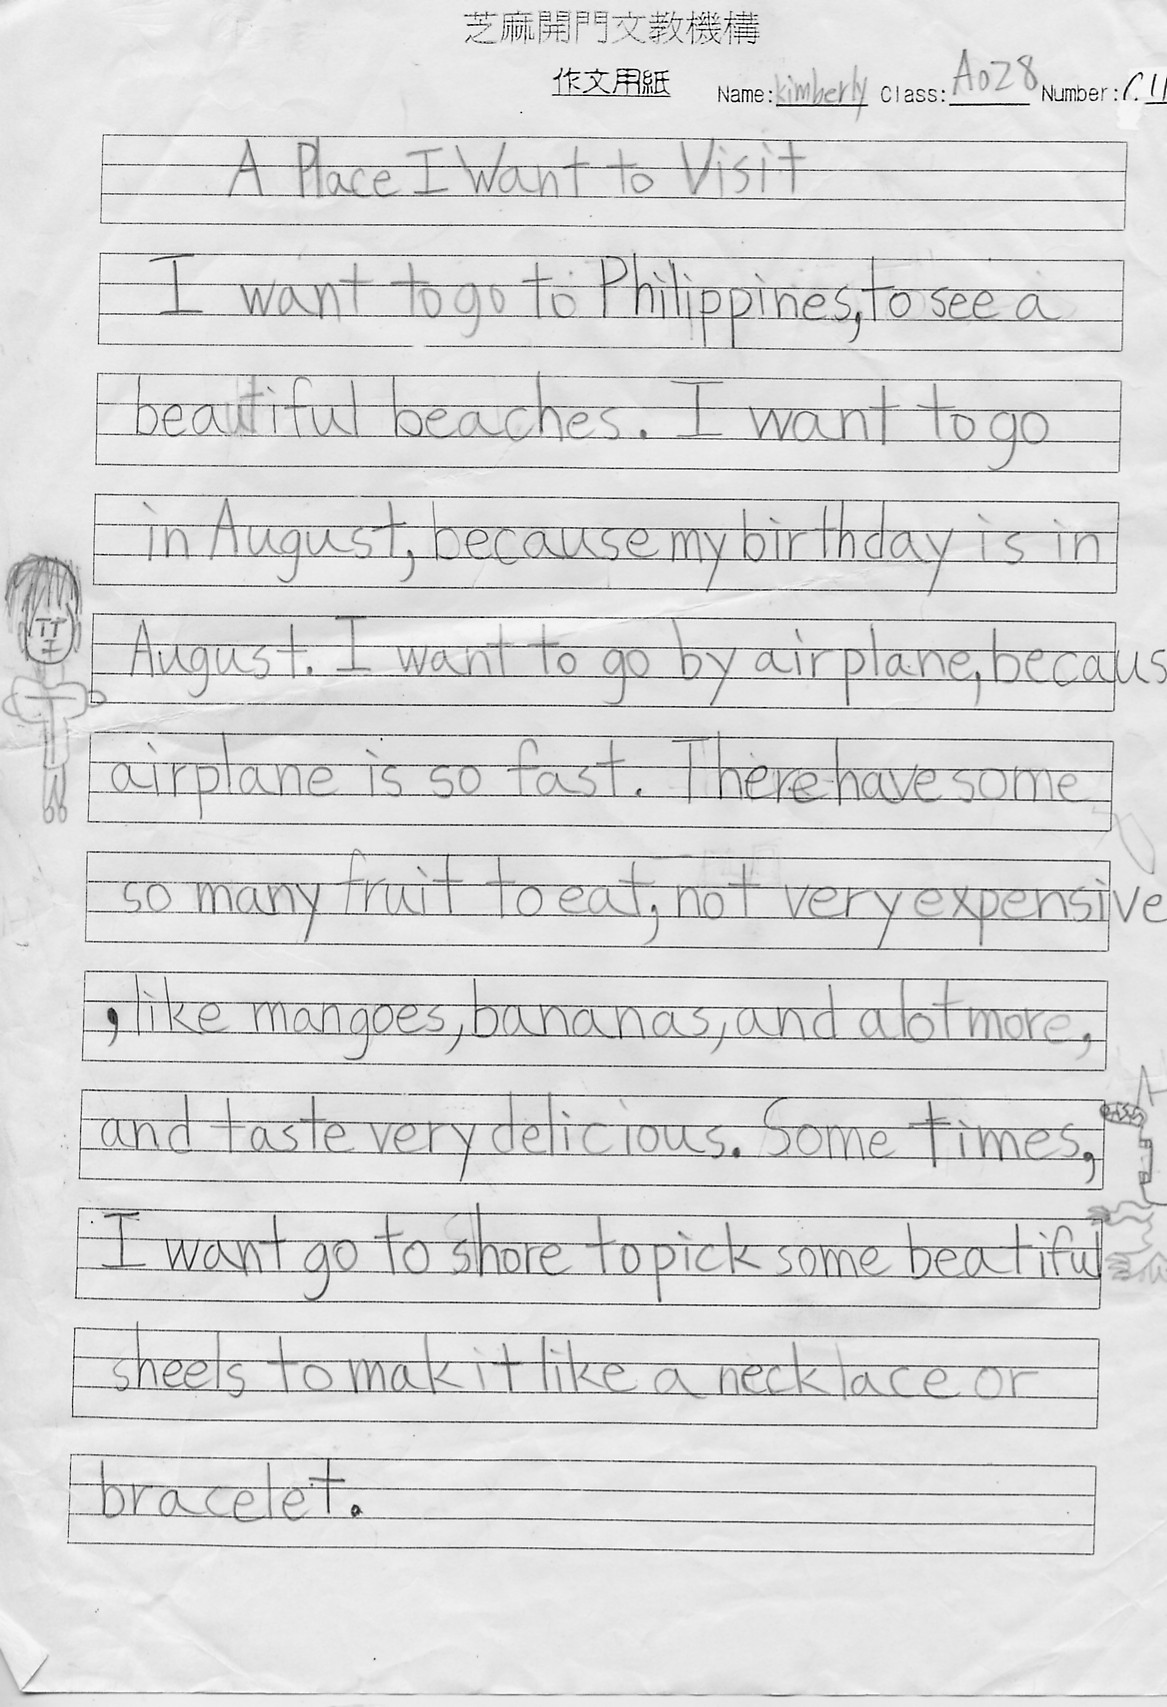 芝麻開門文教機構
作文用紙 Name: kimberly Class: A028 Number:
A Place I Want to Visit
I want to go to Philippines, to see a
beautiful beaches. I want to go
in August, because my birthday is in
August. I want to go by airplane, becaus
airplane is so fast. There have some
so many fruit to eat, not very expensive
, like mangoes, bananas, and a lot more,
and taste very delicious. Some times,
I want go to shore to pick some beatiful
sheels to mak it like a necklace or
bracelet.